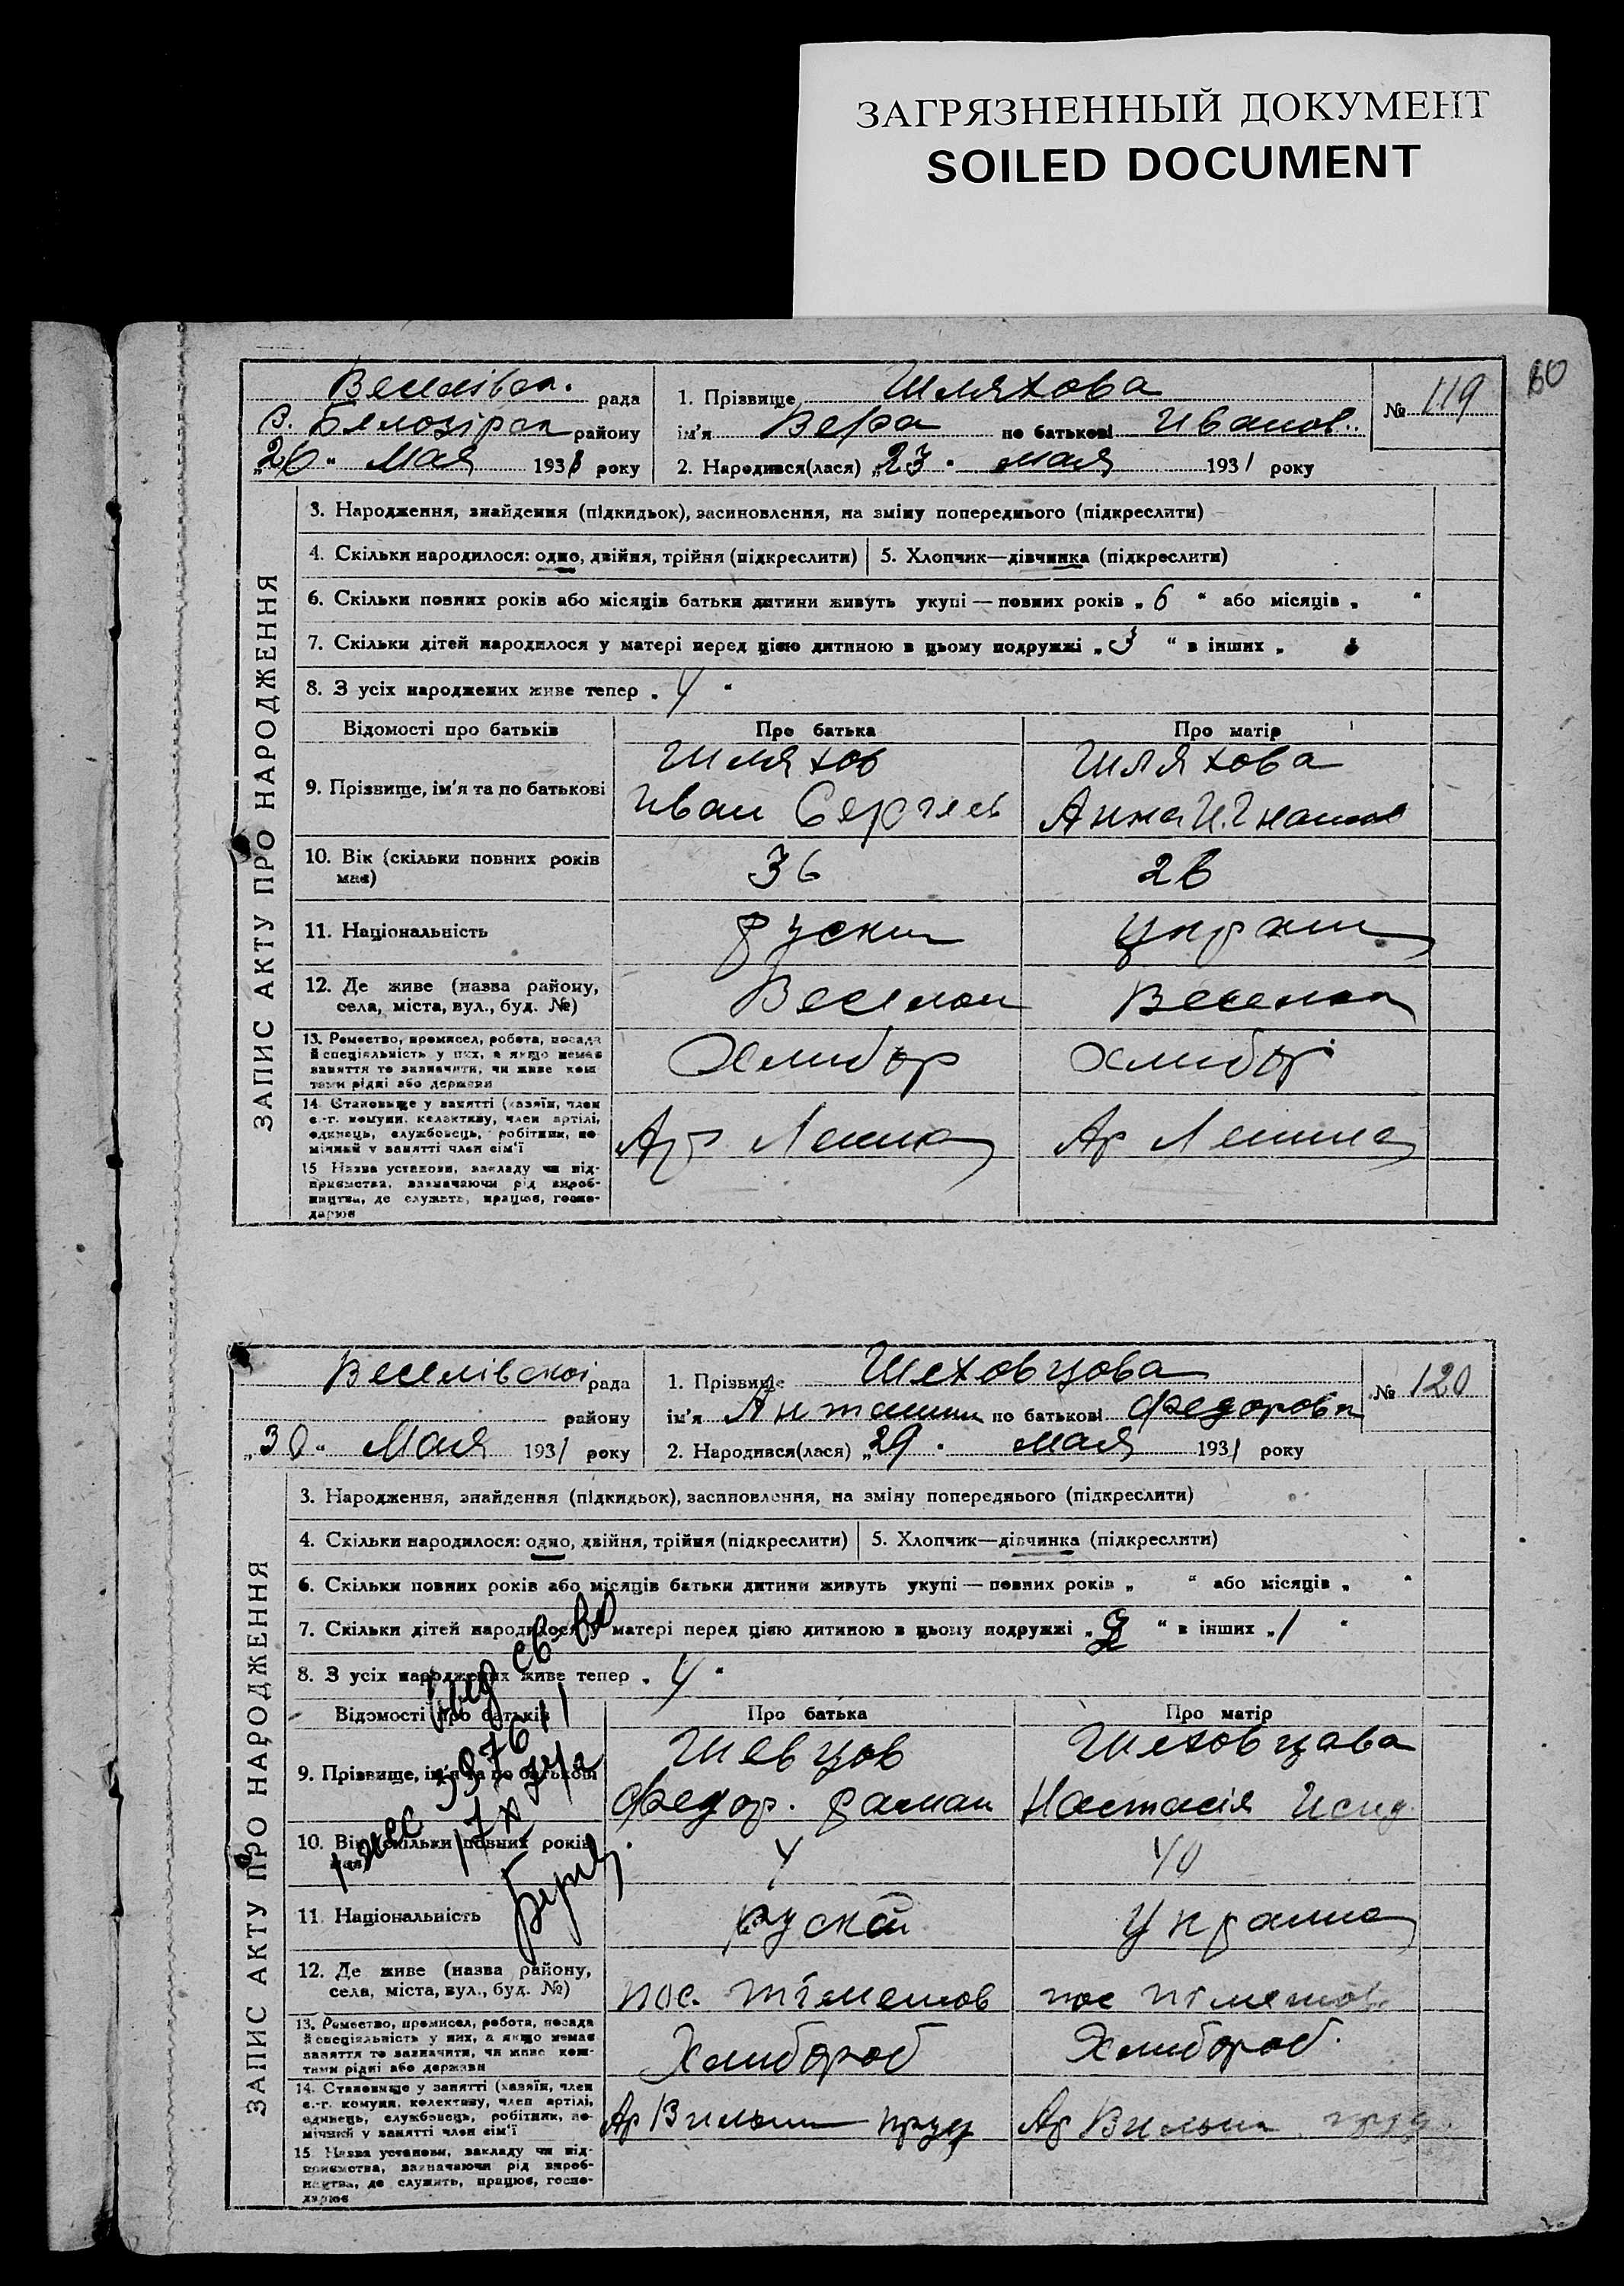 ЗАГРЯЗНЕННЫЙ ДОКУМЕНТ
SOILED DOCUMENT
60
Веселівск. рада
В. Белозірск району
„26“ Мая 1931 року
1. Прізвище Шляхова
ім'я Вера по батькові Иванов..
2. Народився(лася) „23“ мая 1931 року
№ 119
ЗАПИС АКТУ ПРО НАРОДЖЕННЯ
3. Народження, знайдення (підкидьок), засиновлення, на зміну попереднього (підкреслити)
4. Скільки народилося: одно, двійня, трійня (підкреслити) 5. Хлопчик—дівчинка (підкреслити)
6. Скільки повних років або місяців батьки дитини живуть укупі — повних років „6“ або місяців „ “
7. Скільки дітей народилося у матері перед цією дитиною в цьому подружжі „3“ в інших „
8. З усіх народжених живе тепер „4“
Відомості про батьків Про батька Про матір
9. Прізвище, ім'я та по батькові
Шляхов
Иван Сергеев
Шляхова
Анна
10. Вік (скільки повних років має) 36
11. Національність руски украин
12. Де живе (назва району, села, міста, вул., буд. №)
13. Ремество, промисел, робота, посада й спеціяльність у них, а якщо немає заняття то зазначити, чи живе коштами рідні або держави Хлибор Хлибор
14. Становище у занятті (хазяїн, член с.-г. комуни, колективу, член артілі, одинець, службовець, робітник, помічний у занятті член сім'ї Ар Ленина
15. Назва установи, закладу чи підприємства, зазначаючи рід виробництва, де служить, працює, господарює
Веселівскої рада
району
„30“ Мая 1931 року
1. Прізвище Шеховцова
ім'я по батькові Федоровн
2. Народився(лася) „29“ мая 1931 року
№ 120
ЗАПИС АКТУ ПРО НАРОДЖЕННЯ
3. Народження, знайдення (підкидьок), засиновлення, на зміну попереднього (підкреслити)
4. Скільки народилося: одно, двійня, трійня (підкреслити) 5. Хлопчик—дівчинка (підкреслити)
6. Скільки повних років або місяців батьки дитини живуть укупі — повних років „ “ або місяців „ “
7. Скільки дітей народилося у матері перед цією дитиною в цьому подружжі „ “ в інших „1“
8. З усіх народжених живе тепер „4“
Відомості про батьків Про батька Про матір
9. Прізвище, ім'я та по батькові
Шевцов
Федор. Раман
Шеховцава
Настасія Исид.
10. Вік (скільки повних років має) 40
11. Національність руской украина
12. Де живе (назва району, села, міста, вул., буд. №) пос. пос
13. Ремество, промисел, робота, посада й спеціяльність у них, а якщо немає заняття то зазначити, чи живе коштами рідні або держави Хлибороб Хлибороб.
14. Становище у занятті (хазяїн, член с.-г. комуни, колективу, член артілі, одинець, службовець, робітник, помічний у занятті член сім'ї Ар Вильни труд Ар Вильни труд.
15. Назва установи, закладу чи підприємства, зазначаючи рід виробництва, де служить, працює, господарює